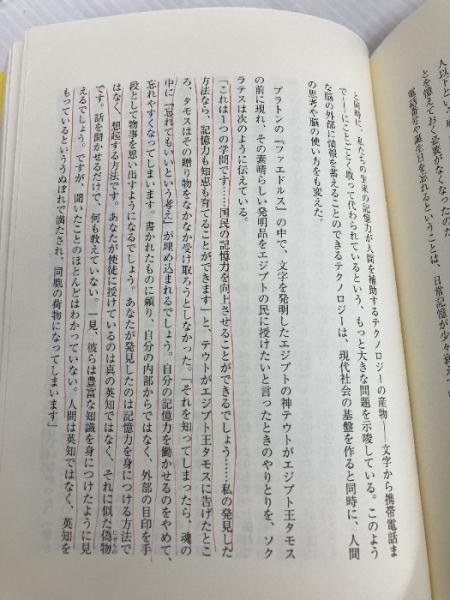 人以下という
とを憶えておく必要がなくなったのだ
電話番号や誕生日を忘れるということは、日常記憶が少々衰え
と同時に、私たちの生来の記憶力が人間を補助するテクノロジーの産物――文字から携帯電話ま
で――にことごとく取って代わられているという、もっと大きな問題を示唆している。このよう
な脳の外部に情報を蓄えることのできるテクノロジーは、現代社会の基盤を作ると同時に、人間
の思考や脳の使い方をも変えた。
プラトンの『ファエドルス』の中で、文字を発明したエジプトの神テウトがエジプト王タモス
の前に現れ、その素晴らしい発明品をエジプトの民に授けたいと言ったときのやりとりを、ソク
ラテスは次のように伝えている。
「これは一つの学問です……国民の記憶力を向上させることができるでしょう……私の発見した
方法なら、記憶力も知恵も育てることができます」と、テウトがエジプト王タモスに告げたとこ
ろ、タモスはその贈り物をなかなか受け取ろうとしなかった。「それを知ってしまったら、魂の
中に『忘れてもいいという考え』が埋め込まれるでしょう。自分の記憶力を働かせるのをやめて、
忘れやすくなってしまいます。書かれたものに頼り、自分の内部からではなく、外部の目印を手
段として物事を思い出すようになるでしょう。あなたが発見したのは記憶力を身につける方法で
はなく、想起する方法です。あなたが使徒に授けているのは真の英知ではなく、それに似た偽物
にせもの
です。話を聞かせるだけで、何も教えていない。一見、彼らは豊富な知識を身につけたように見
えるでしょう。ですが、聞いたことのほとんどはわかっていない。人間は英知ではなく、英知を
もっているといううぬぼれで満たされ、同胞の荷物になってしまいます」